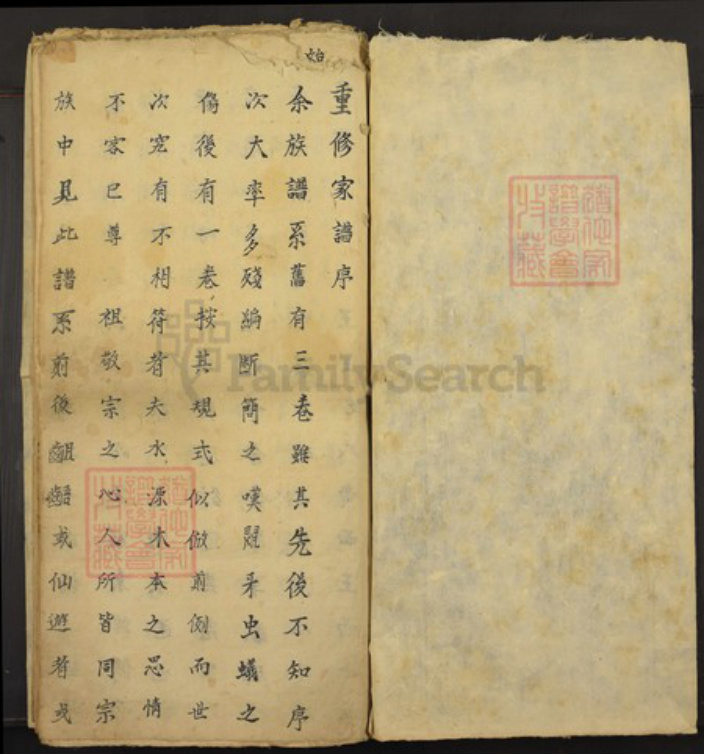 重修家譜序
余族譜系舊有三卷雖其先後不知序
次大率多殘編断簡之嘆鼠牙虫蟻之
傷後有一卷按其規式似倣前例而世
次究有不相符者夫水源木本之思情
不容已尊祖敬宗之心人所皆同宗
族中見此譜系前後齟齬或仙遊者或
FamilySearch